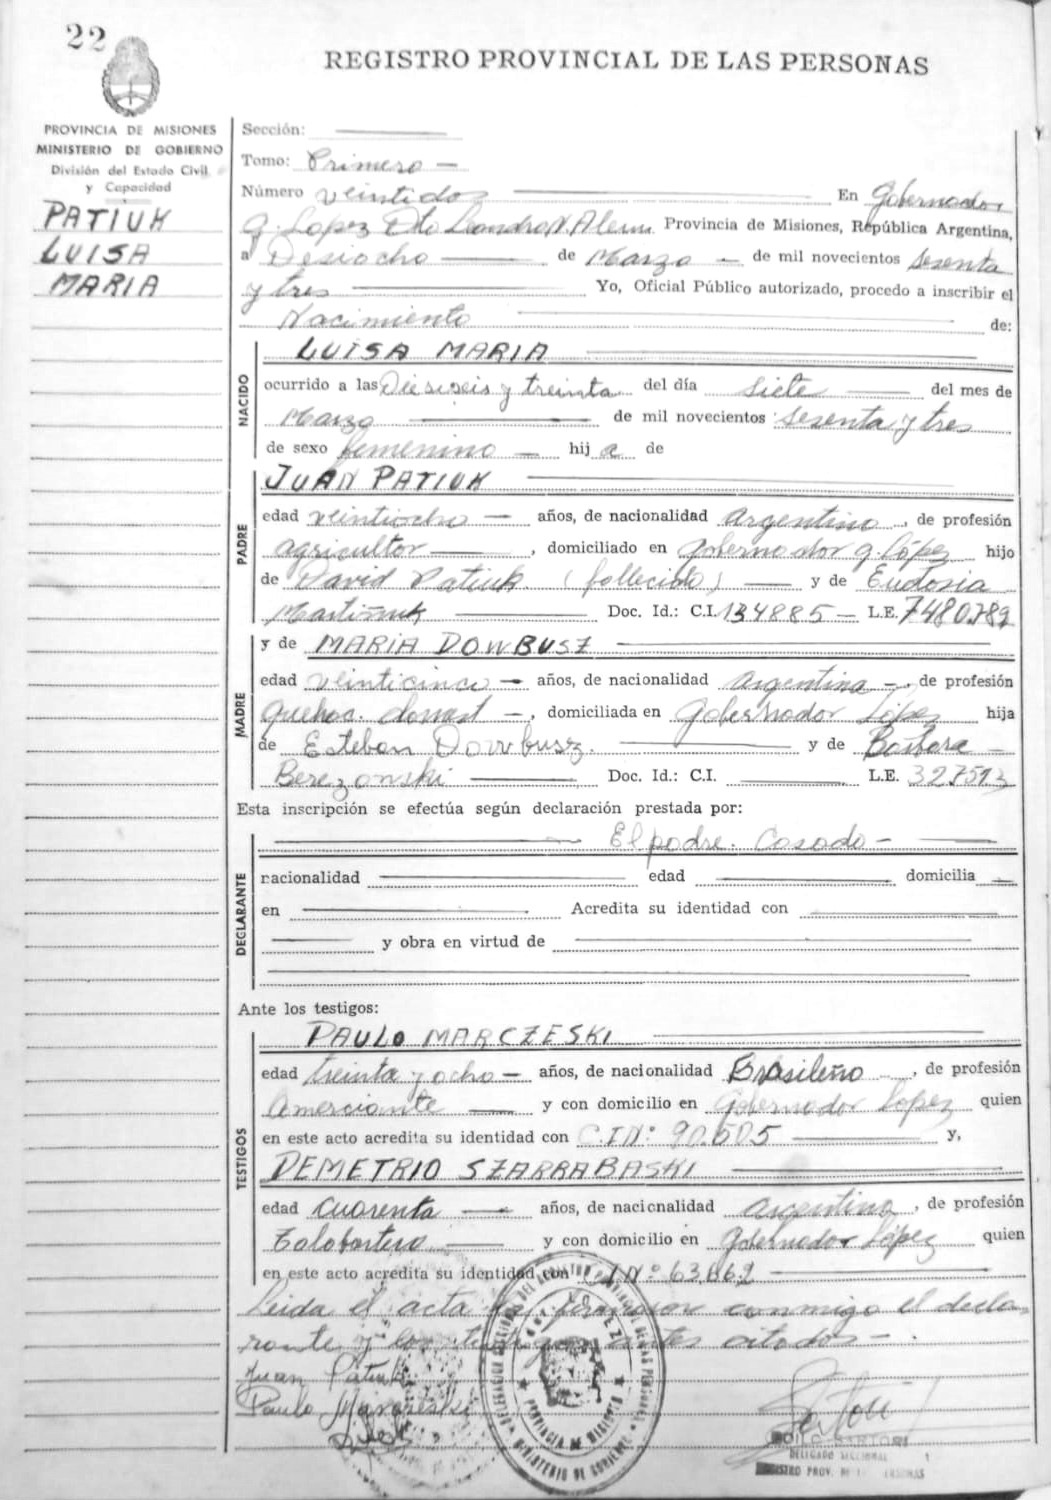 22
REGISTRO PROVINCIAL DE LAS PERSONAS
PROVINCIA DE MISIONES
MINISTERIO DE GOBIERNO
División del Estado Civil
y Capacidad
PATIUK
LUISA
MARIA
Sección:
Tomo: Primero
Número veintidos En Gobernador
G. Lopez Dto Leandro N. Alem Provincia de Misiones, República Argentina,
a Desiocho de Marzo de mil novecientos sesenta
y tres Yo, Oficial Público autorizado, procedo a inscribir el
Nacimiento de:
NACIDO
LUISA MARIA
ocurrido a las Dieciseis y treinta del día siete del mes de
Marzo de mil novecientos sesenta y tres
de sexo femenino hij a de
PADRE
JUAN PATIUK
edad veintiocho años, de nacionalidad Argentino, de profesión
agricultor, domiciliado en Gobernador G. López hijo
de David Patiuk (fallecido) y de Eudosia
Martiñuk Doc. Id.: C.I. 134885 L.E. 7480.789
MADRE
y de MARIA DOWBUSZ
edad veinticinco años, de nacionalidad argentina, de profesión
quehac. domest, domiciliada en Gobernador López hija
de Esteban Dowbusz. y de Barbara
Berezanski Doc. Id.: C.I. L.E. 327513
Esta inscripción se efectúa según declaración prestada por:
DECLARANTE
El padre. Casado
nacionalidad edad domicilia
en Acredita su identidad con
y obra en virtud de
Ante los testigos:
TESTIGOS
PAULO MARCZESKI
edad treinta y ocho años, de nacionalidad Brasileño, de profesión
Comerciante y con domicilio en Gobernador Lopez quien
en este acto acredita su identidad con C.I Nº 90.605 y,
DEMETRIO SZARRABASKI
edad Cuarenta años, de nacionalidad argentino, de profesión
Talabartero y con domicilio en Gobernador López quien
en este acto acredita su identidad con Nº 63.862
Leida el acta conmigo el decla-
rante y los testigos antes citados.
Juan Patiuk
Paulo Marczeski
PROVINCIA DE MISIONES
MINISTERIO DE GOBIERNO
SARTORI
DELEGADO SECCIONAL
REGISTRO PROV. DE PERSONAS